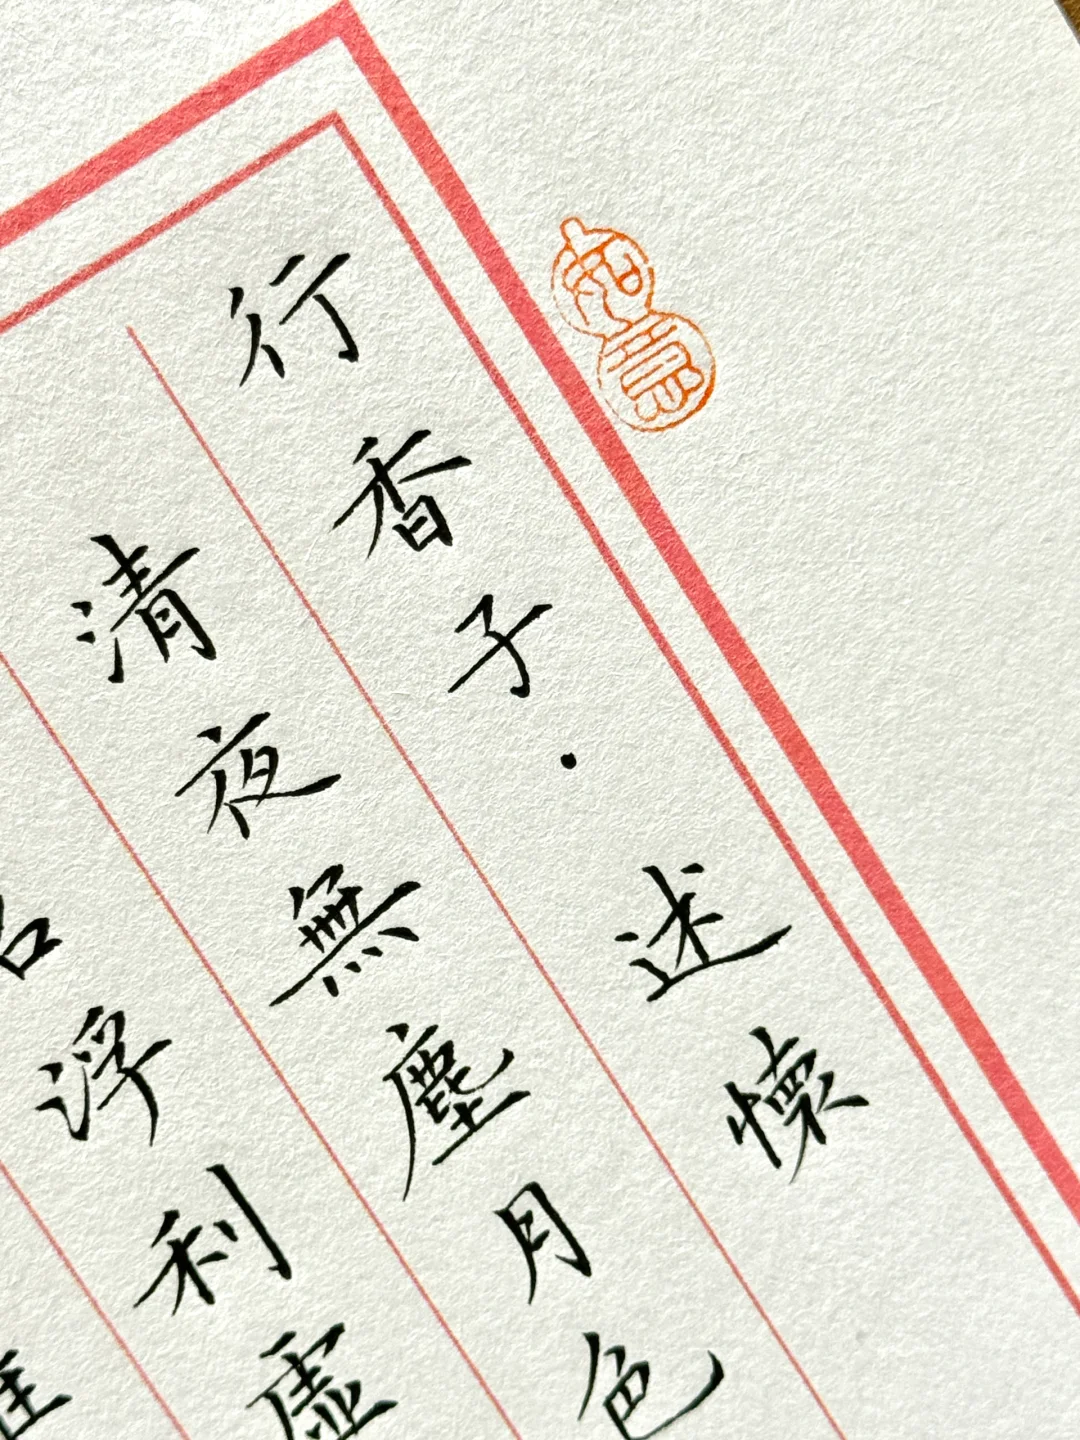 行香子·述懷
清夜無塵月色
浮利虛